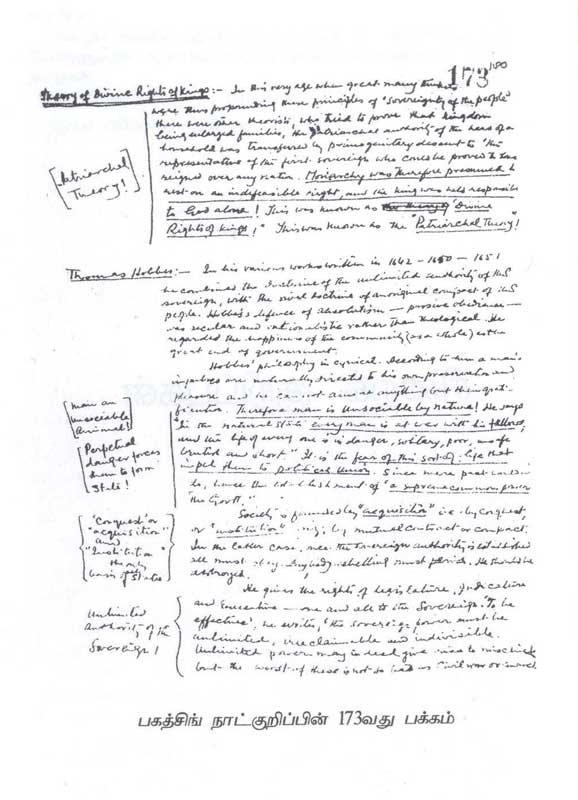 173
180
Theory of Divine Rights of Kings:— In this very age when great many thinkers
were thus propounding these principles of "sovereignty of the people"
there were other theorists, who tried to prove that kingdoms
being enlarged families, the patriarchal authority of the head of a
household was transferred by primogenitary descent to the
representative of the first sovereign who could be proved to have
reigned over any nation. Monarchy was therefore presumed to
rest on an indefeasible right, and the king was held responsible
to God alone! This was known as Divine
Rights of Kings!" This was known as the "Patriarchal Theory"!
[Patriarchal
Theory!]
Thomas Hobbes:— In his various works written in 1642 – 1650 – 1651
he combined the doctrine of the unlimited authority of the
sovereign, with the rival doctrine of an original compact of the
people. Hobbes's defence of absolutism — passive obedience —
was secular and rationalistic rather than theological. He
regarded the happiness of the community (as a whole) as the
great end of government.
Hobbes' philosophy is cynical. According to him a man's
impulses are naturally directed to his own preservation and
pleasure and he cannot aim at anything but their grati-
fication. Therefore man is Unsociable by nature! He says
"In the natural state every man is at war with his fellows;
and the life of every one is in danger, solitary, poor, unsafe
brutal and short." It is the fear of this sort of life that
impel them to political Union. Since mere pact
to, hence the establishment of "a supreme common power
the Govtt."
[man an
Unsociable
Animal!]
[Perpetual
danger forces
them to form
State!]
Society is founded by "acquisition" i.e. by conquest
or "institution" viz; by mutual contract or compact.
In the latter case, once the sovereign authority is established
all must obey. Anybody rebelling must perish. He should be
destroyed!
["Conquest" or
"acquisition"
and
"Institution"
the only
basis of all States]
He gives the rights of Legislature, Judicature
and Executive — one and all to the Sovereign. "To be
effective", he writes, "the sovereign power must be
unlimited, irreclaimable and indivisible.
Unlimited power may indeed give rise to mischief,
but the worst of these is not so bad as Civil war or
Unlimited
Authority of the
Sovereign!
பகத்சிங் நாட்குறிப்பின் 173வது பக்கம்